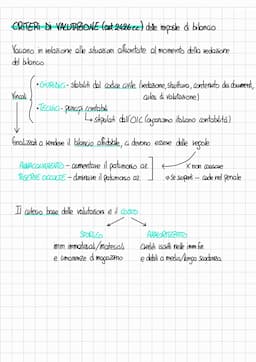 CRITERI DI VALUTAZIONE (art 2426 cc) delle imposte di bilancio
Variano in relazione alle situazioni affrontate al momento della redazione
del bilancio
Vincoli
• GIURIDICI - stabiliti dal codice civile (redazione, struttura, contenuto dei documenti,
criteri di valutazione)
• TECNICI - principi contabili
↳ stipulati dall'OIC (organismo italiano contabilità)
finalizzati a rendere il bilancio affidabile, e devono essere delle regole
ANNACQUAMENTO - aumentare il patrimonio az.
RISERVE OCCULTE - diminuire il patrimonio az
x non causare
→ se superati - cade nel penale
Il criterio base delle valutazioni è il COSTO
STORICO
imm immateriali/materiali
e rimanenze di magazzino
AMMORTIZZATO
crediti iscritti nelle imm fin
e debiti a medio/lungo scadenza